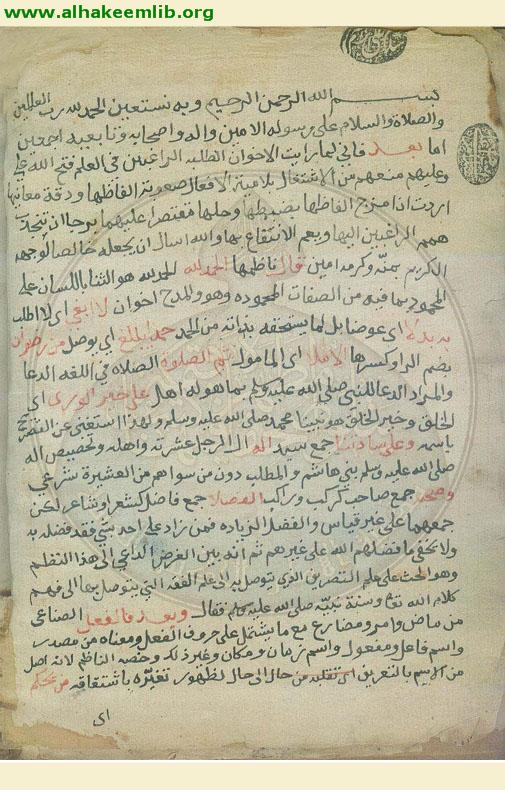 www.alhakeemlib.org
بسم الله الرحمن الرحيم وبه نستعين الحمد لله رب العالمين
والصلاة والسلام على رسوله الامين واله واصحابه وتابعيه اجمعين
اما بعد فاني لما رايت الاخوان الطلبه الراغبين في العلم فتح الله علي
وعليهم منعهم من الاشتغال بلامية الافعال صعوبة الفاظها ودقة معانيها
اردت ان امزج الفاظها بضبطها وحلها مقتصرا عليهما رجا ان تنجذب
همم الراغبين اليها ويعم الانتفاع بها والله اسال ان يجعله خالصا لوجهه
الكريم بمنه وكرمه امين قال ناظمها الحمد لله الحمد لله هو الثنا باللسان على
المحمود بما فيه من الصفات المحموده وهو والمدح اخوان لا ابغي اي لا اطلب
به بدلا اي عوضا بل لما يستحقه بذاته من الحمد حمدا يبلغ اي يوصل من رضوانه
بضم الرا وكسرها الاملا اي المامول ثم الصلوة الصلاه في اللغه الدعا
والمراد الدعا للنبي صلى الله عليه وسلم بما هو له اهل على خير الورى اي
الخلق وخير الخلق هو نبينا محمد صلى الله عليه وسلم ولهذا استغنى عن التصريح
باسمه وعلى ساداتنا جمع سيد اله ال الرجل عشرته واهله وتخصيص اله
صلى الله عليه وسلم ببني هاشم والمطلب دون من سواهم من العشيرة شرعي
وصحبه جمع صاحب كركب وراكب الفضلا جمع فاضل كشعرا وشاعر لكن
جمعهما على غير قياس والفضل الزياده فمن زاد على احد بشي فقد فضله به
ولا يخفى ما فضلهم الله على غيرهم ثم انه بين الغرض الداعي الى هذا النظم
وهو الحث على علم التصريف الذي يتوصل به الى علم اللغه التي يتوصل بها الى فهم
كلام الله تعا وسنة نبيه صلى الله عليه وسلم فقال وبعد فالفعل الصناعي
من ماض وامر ومضارع مع ما يشتمل على حروف الفعل ومعناه من مصدر
واسم فاعل ومفعول واسم زمان ومكان وغير ذلك وخصه الناظم لانه اصل
من الاسم بالتعريف اي تقلبه من حال الى حال لظهور تغيره باشتقاقه من يحكم
اي